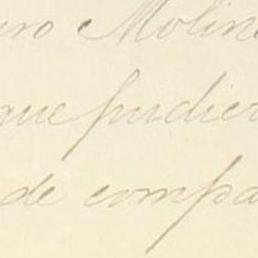 uro Molin
que pudier
de compa